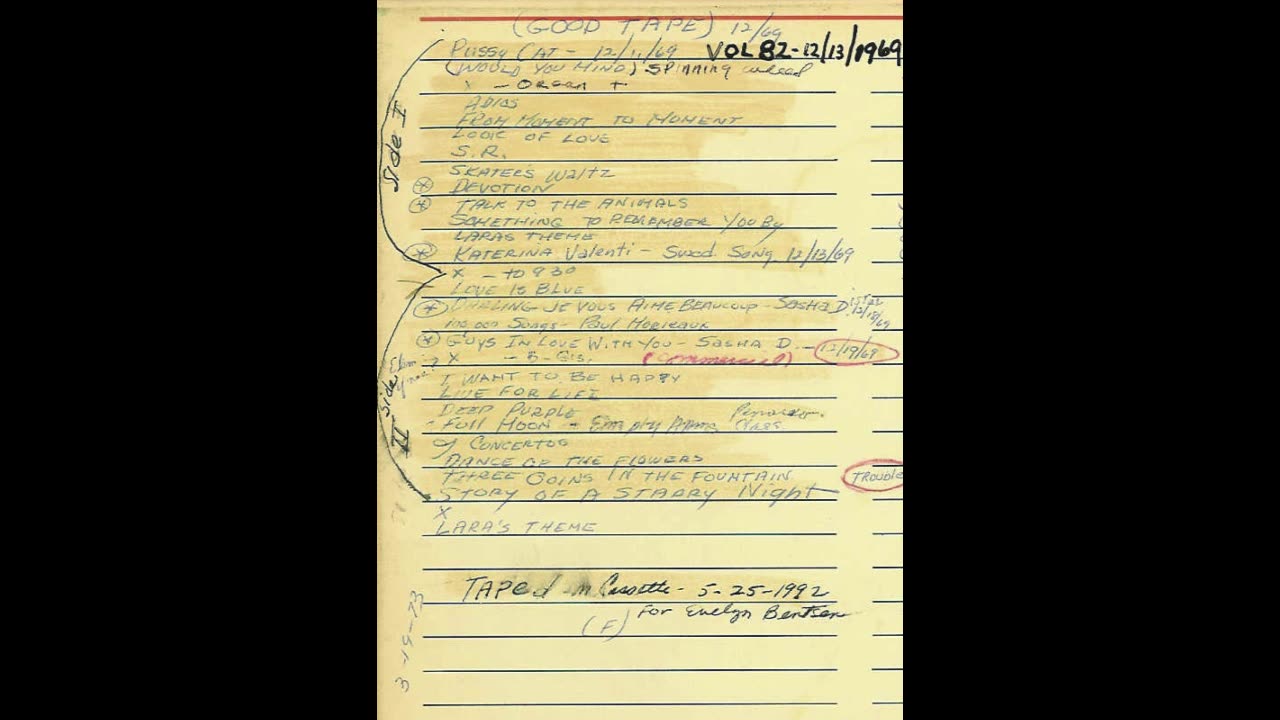 (GOOD TAPE) 12/69
PUSSY CAT - 12/1/69 VOL 82-12/13/1969
(WOULD YOU MIND) SPINNING wheel
X - ORGAN +
ADIOS
FROM MOMENT TO MOMENT
LOGIC OF LOVE
S.R.
SKATERS WALTZ
DEVOTION
TALK TO THE ANIMALS
SOMETHING TO REMEMBER YOU By
LARAS THEME
KATERINA Valenti - Song 12/13/69
X - TO 930
LOVE IS BLUE
DARLING JE VOUS AIME BEAUCOUP - SASHA D. 12/18/69
100,000 Songs - Paul
GUYS IN LOVE WITH YOU - SASHA D. - 12/19/69
X - B - (commercial)
I WANT TO BE HAPPY
LIVE FOR LIFE
DEEP PURPLE
- FULL MOON + Empty Arms
9 CONCERTOS
DANCE OF THE FLOWERS
THREE COINS IN THE FOUNTAIN TROUBLE
STORY OF A STARRY Night
X
LARA'S THEME
TAPEd in Cassette - 5-25-1992
for Evelyn Bentsen
(F)
Side I
Side II
3-19-73